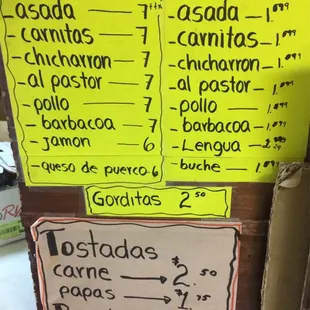 asada — 7 +tx
- carnitas — 7
- chicharron — 7
- al pastor — 7
- pollo — 7
- barbacoa — 7
- jamon — 6
- queso de puerco - 6
- asada — 1.99
- carnitas — 1.99
- chicharron — 1.99
- al pastor — 1.99
- pollo — 1.99
- barbacoa — 1.99
- Lengua — 2
- buche — 1.99
Gorditas 2.50
Tostadas
carne → $2.50
papas → $1.75